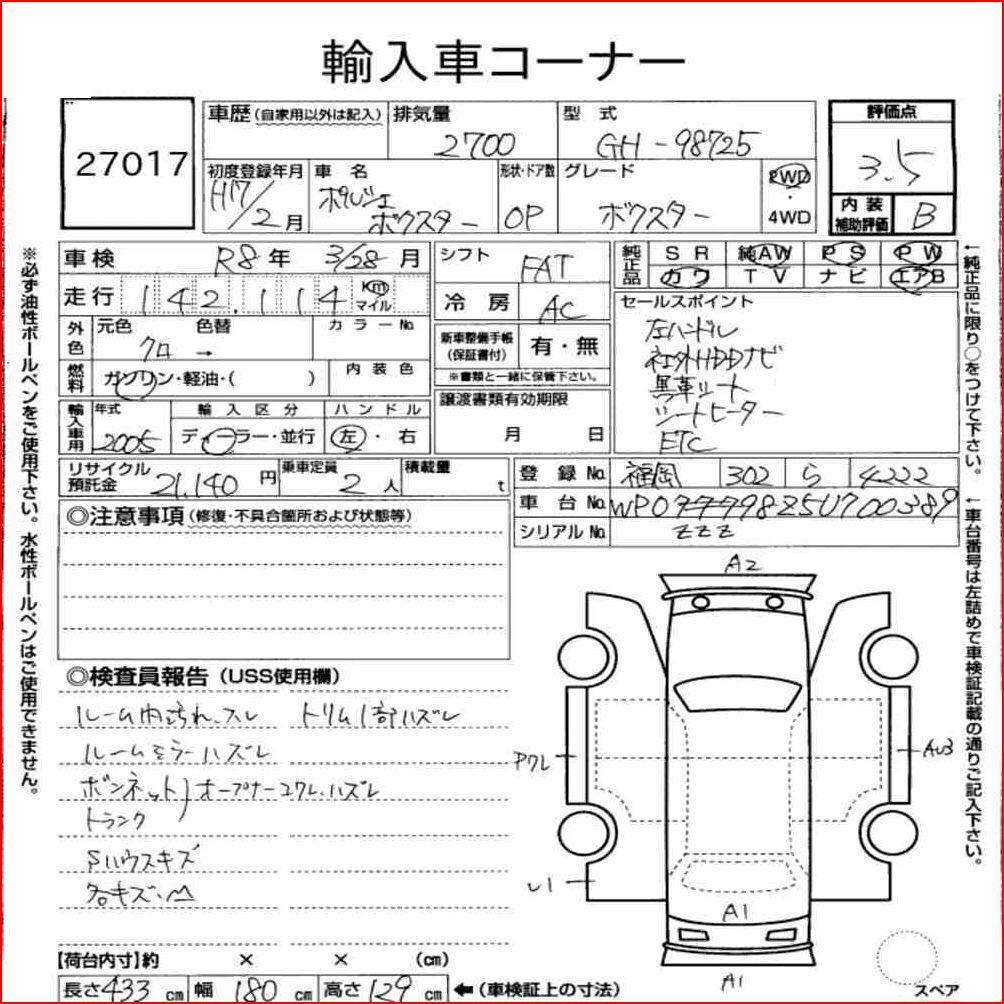 輸入車コーナー
27017
車歴 (自家用以外は記入) 排気量 2700 型式 GH-98725
評価点 3.5
初度登録年月 H17/2月 車名 ポルシェ ボクスター 形状・ドア数 OP グレード ボクスター 2WD・4WD
内装補助評価 B
車検 R8年 3/28月 シフト FAT
純正品 SR 純AW PS PW
カワ TV ナビ エアB
走行 142,114 Km マイル 冷房 AC
外色 元色 クロ 色替 → カラーNo.
新車整備手帳 (保証書付) 有・無
※書類と一緒に保管下さい。
燃料 ガソリン・軽油・( ) 内装色
譲渡書類有効期限 月 日
輸入車用 年式 2005 輸入区分 ディーラー・並行 ハンドル 左・右
セールスポイント
左ハンドル
社外HDDナビ
黒革シート
シートヒーター
ETC
リサイクル預託金 21,140円 乗車定員 2人 積載量 t
登録No. 福岡 302 ら 4222
車台No. WP0ZZZ98Z5U700389
シリアルNo. ZZZ
◎注意事項 (修復・不具合箇所および状態等)
◎検査員報告 (USS使用欄)
ルーム内汚れ、スレ トリム1部ハズレ
ルームミラーハズレ
ボンネット)オープナーコワレ、ハズレ
トランク
Sハウスキズ
名キズ・凹
A2
Pワレ
AU3
U1
A1
A1
スペア
【荷台内寸】約 × × (cm)
長さ433cm 幅180cm 高さ129cm ←(車検証上の寸法)
※必ず油性ボールペンをご使用下さい。水性ボールペンはご使用できません。
←純正品に限り○をつけて下さい。
←車台番号は左詰めで車検証記載の通りご記入下さい。